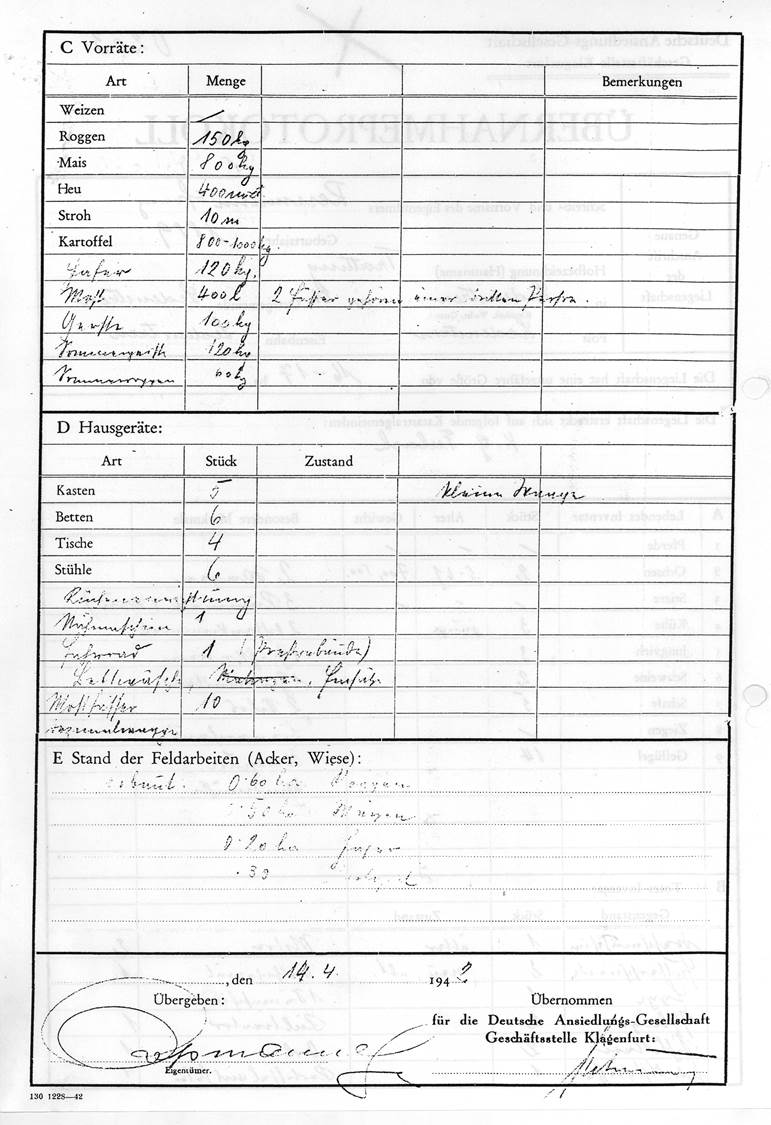 C Vorräte:
Art Menge Bemerkungen
Weizen —
Roggen 150 kg
Mais 800 kg
Heu 400
Stroh 10 m
Kartoffel 800-1000 kg.
Hafer 120 kg.
Most 400 l 2 Fässer gehören einer dritten Person.
Gerste 100 kg
Sommerweizen 120 kg
Sommerroggen 60 kg
D Hausgeräte:
Art Stück Zustand
Kasten 5 kleine Waage
Betten 6
Tische 4
Stühle 6
Kücheneinrichtung
Nähmaschine 1
Fahrrad 1
Bettwäsche,
Mostfässer 10
Dezimalwaage
E Stand der Feldarbeiten (Acker, Wiese):
0·60 ha Roggen
·50 ha Weizen
0·20 ha Hafer
, den 14. 4. 1942
Übergeben: Übernommen
für die Deutsche Ansiedlungs-Gesellschaft
Geschäftsstelle Klagenfurt:
Eigentümer.
130 1228—42